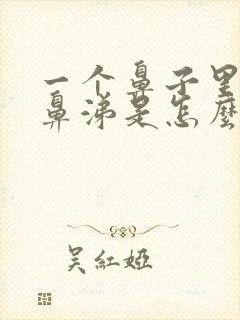 一个鼻子里
鼻涕是怎麼
吴紅婭